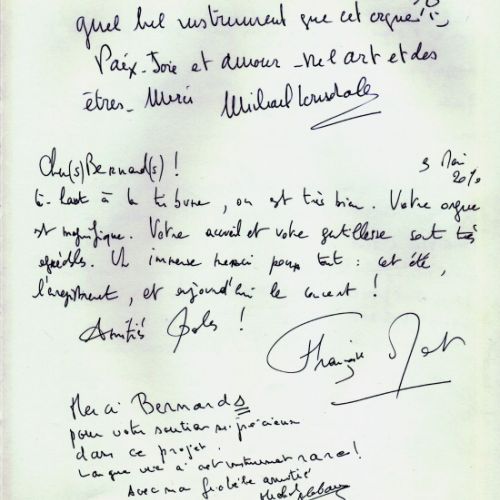 quel bel instrument que cet orgue !
Paix - Joie et amour - de l'art et des
êtres - Merci Michael Lonsdale
Cher(s) Bernard(s) ! 3 Mai
2010
là-haut à la tribune, on est très bien. Votre orgue
est magnifique. Votre accueil et votre gentillesse sont très
agréables. Un immense merci pour tout : cet été,
l'enregistrement, et aujourd'hui le concert !
Amitiés !
Merci Bernards
pour votre soutien si précieux
dans ce projet !
Longue vie à cet instrument rare !
Avec ma fidèle amitié